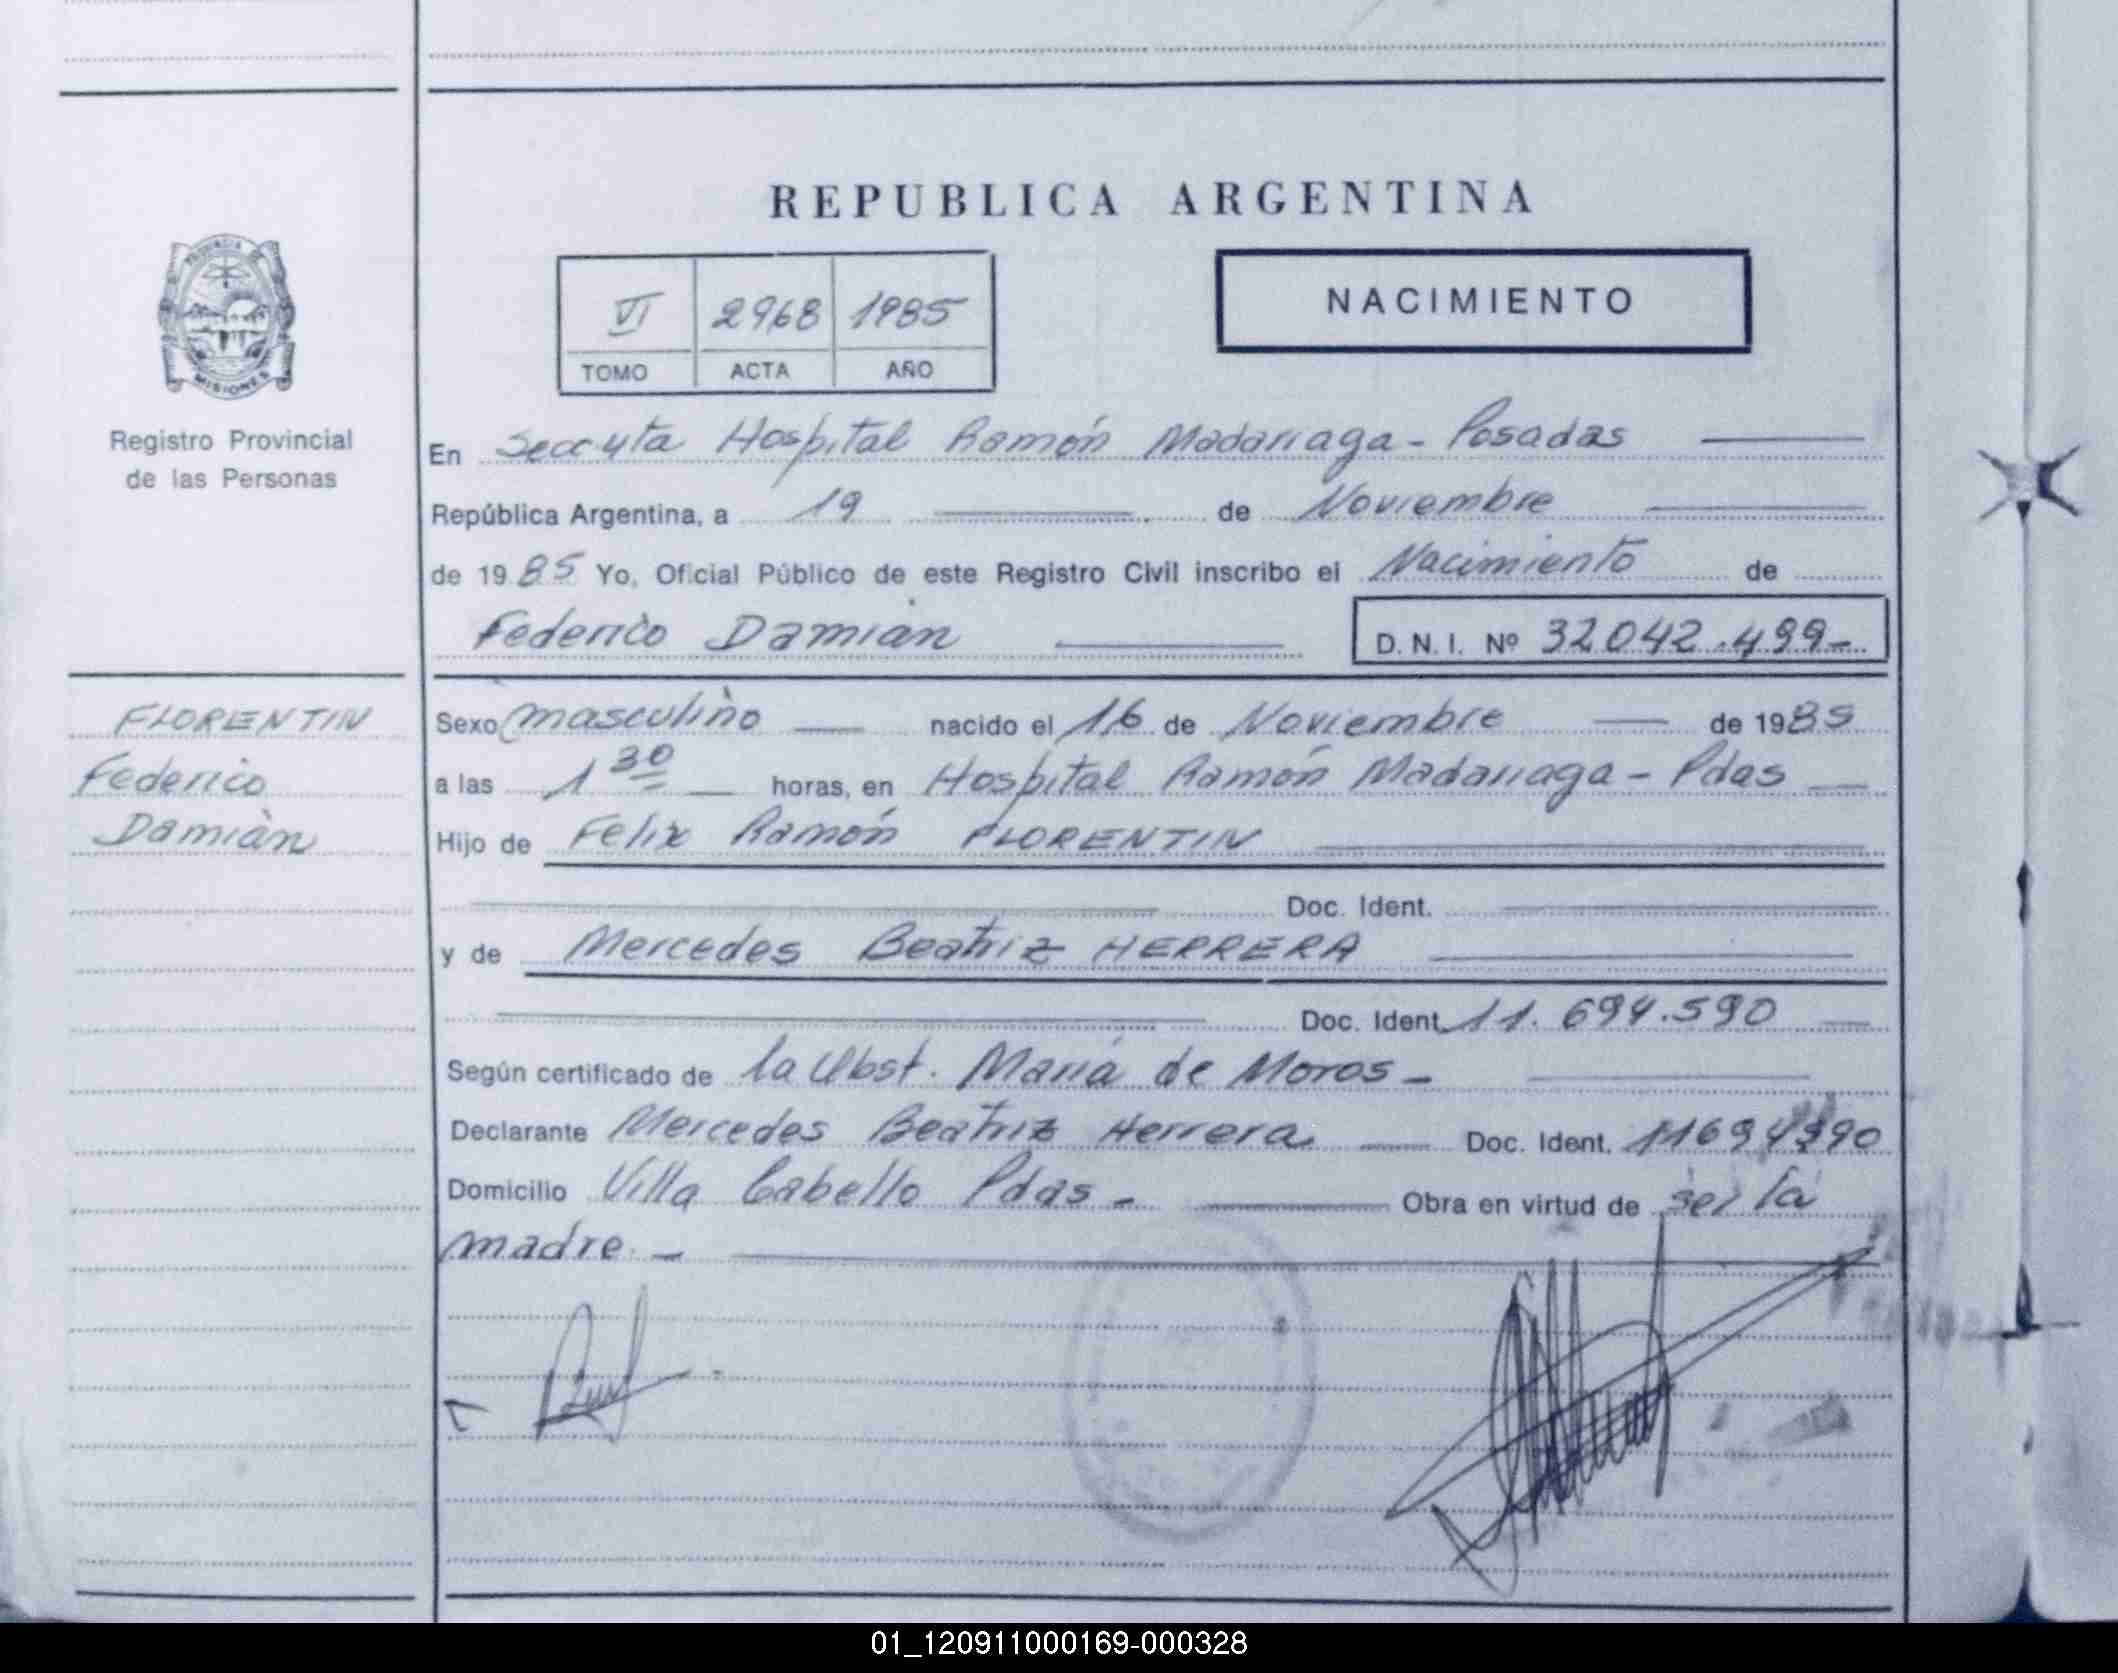 REPUBLICA ARGENTINA
PROVINCIA DE
MISIONES
Registro Provincial
de las Personas
VI 2968 1985
TOMO ACTA AÑO
NACIMIENTO
En Hospital Ramón Madariaga - Posadas
República Argentina, a 19 de Noviembre
de 1985 Yo, Oficial Público de este Registro Civil inscribo el Nacimiento de
Federico Damián D. N. I. Nº 32042.499-
FLORENTIN
Federico
Damián
Sexo masculino nacido el 16 de Noviembre de 1985
a las 1 30 horas, en Hospital Ramón Madariaga - Pdas
Hijo de Felix Ramón FLORENTIN
Doc. Ident.
y de Mercedes Beatriz HERRERA
Doc. Ident. 11.694.590
Según certificado de la Obst. María de Moros -
Declarante Mercedes Beatriz Herrera Doc. Ident. 11694590
Domicilio Villa Cabello Pdas - Obra en virtud de ser la
madre. -
01_120911000169-000328